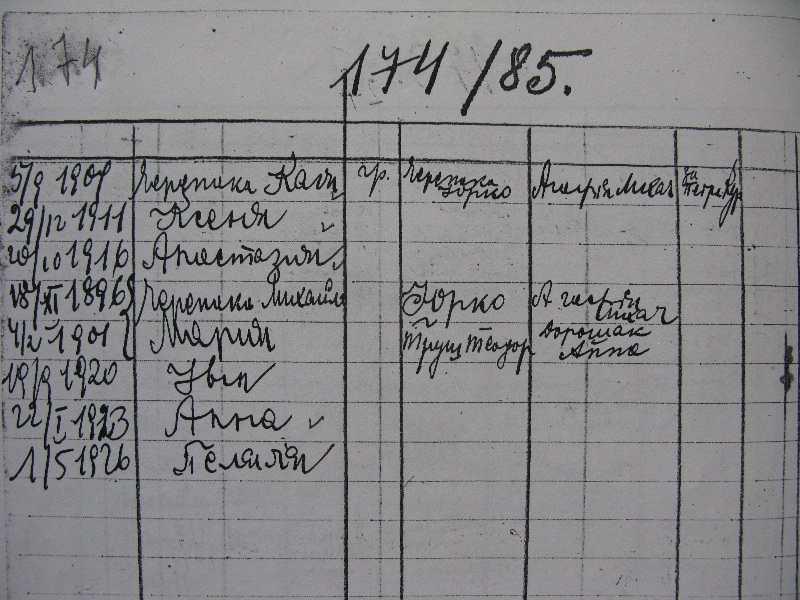 174
174/85.
5/9 1909 Черепака Катя гр. Черепака Юрко Агафія Лихач за Петро
29/12 1911 Ксеня "
20/10 1916 Анастазия "
18/XI 1896 Черепака Михайло Юрко Агафія Лихач
4/2 1901 Мария Трущ Теодор Дорошак Анна
19/9 1920 Иван
22/I 1923 Анна "
1/5 1926 Пелагія